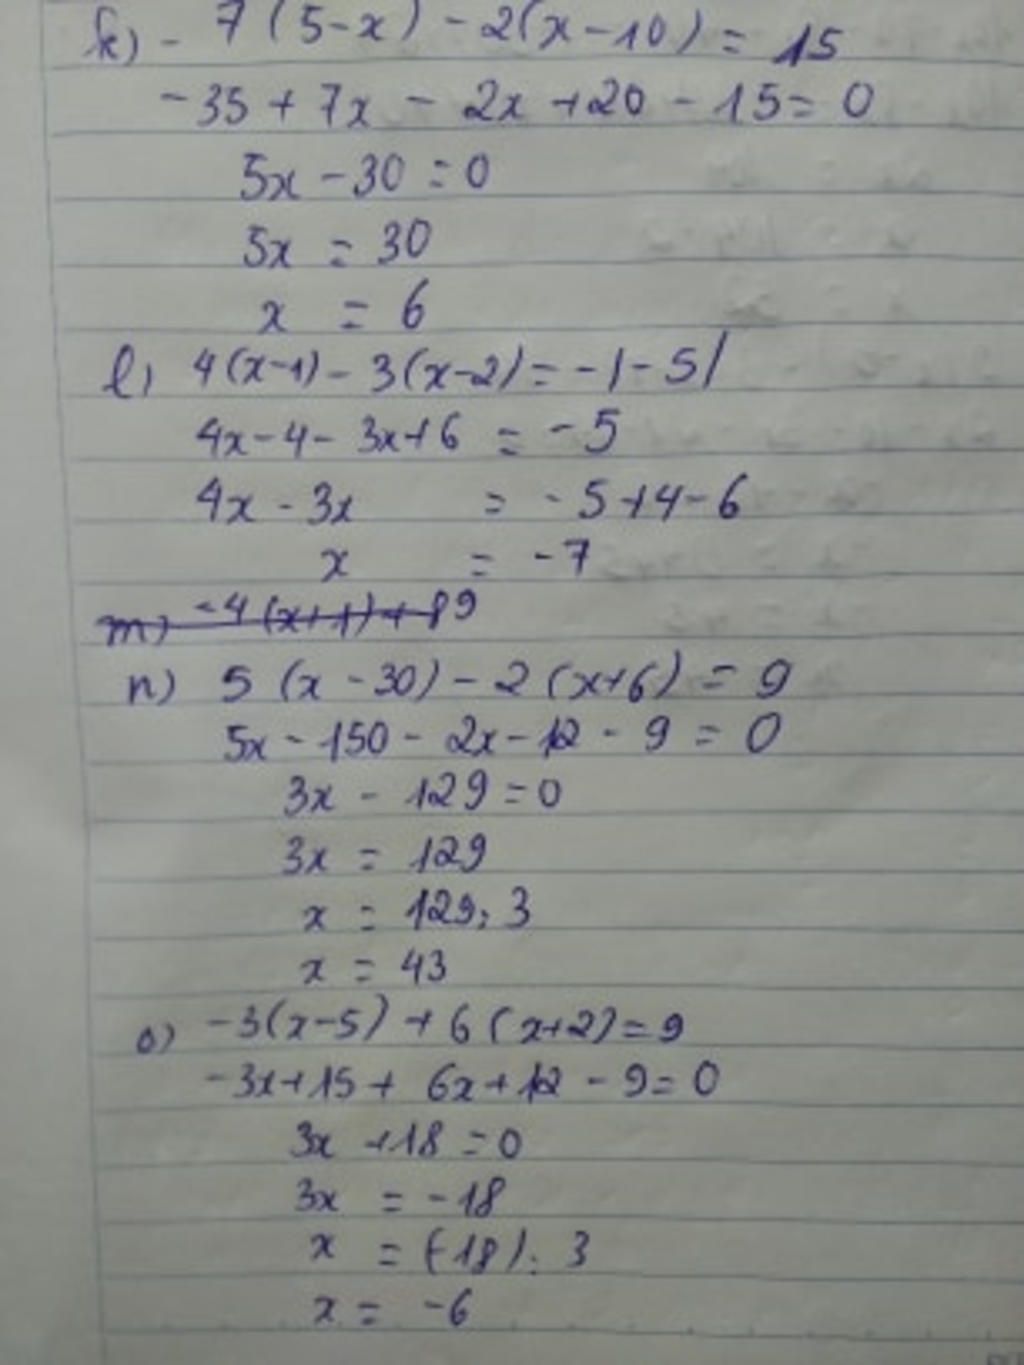 k) - 7 (5-x) - 2(x-10) = 15
-35 + 7x - 2x +20 - 15 = 0
5x - 30 = 0
5x = 30
x = 6
l) 4(x-1) - 3(x-2) = -|-5|
4x-4- 3x+6 = -5
4x - 3x = -5+4-6
x = -7
m) -4(x+1)+89
n) 5 (x - 30) - 2 (x+6) = 9
5x - 150 - 2x - 12 - 9 = 0
3x - 129 = 0
3x = 129
x = 129 : 3
x = 43
o) -3(x-5) + 6(x+2) = 9
-3x+15 + 6x+12 - 9 = 0
3x +18 = 0
3x = -18
x = (-18) : 3
x = -6